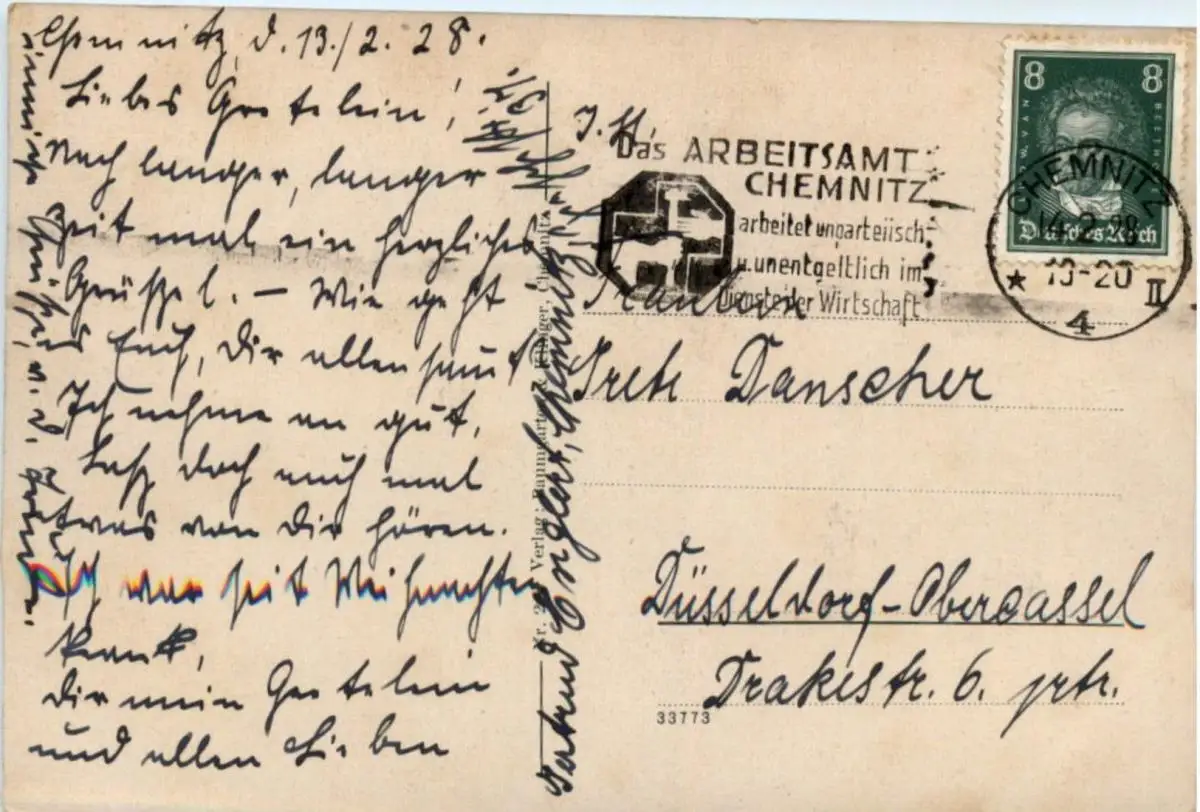 Chemnitz, d. 13./2. 28.
Liebes Gretelein!
Nach langer, langer
Zeit mal ein herzliches
Grüßzel. — Wie geht
es Euch, Dir allen samt
Ich nehme an gut,
Lass doch auch mal
etwas von Dir hören.
Ich war seit Weihnachten
krank,
Dir mein Gretelein
und allen Lieben
innige Grüße, u. d.
Gertrud Englert, Chemnitz,
Nr. Verlag: Chemnitz
I. H.
Fräulein
Grete Danscher
Düsseldorf-Obercassel
Drakestr. 6. prtr.
33773
Das ARBEITSAMT
CHEMNITZ
arbeitet unparteiisch
u. unentgeltlich im
Dienste der Wirtschaft
8 8
Deutsches Reich
CHEMNITZ
14.2.28
19-20
★ II
4